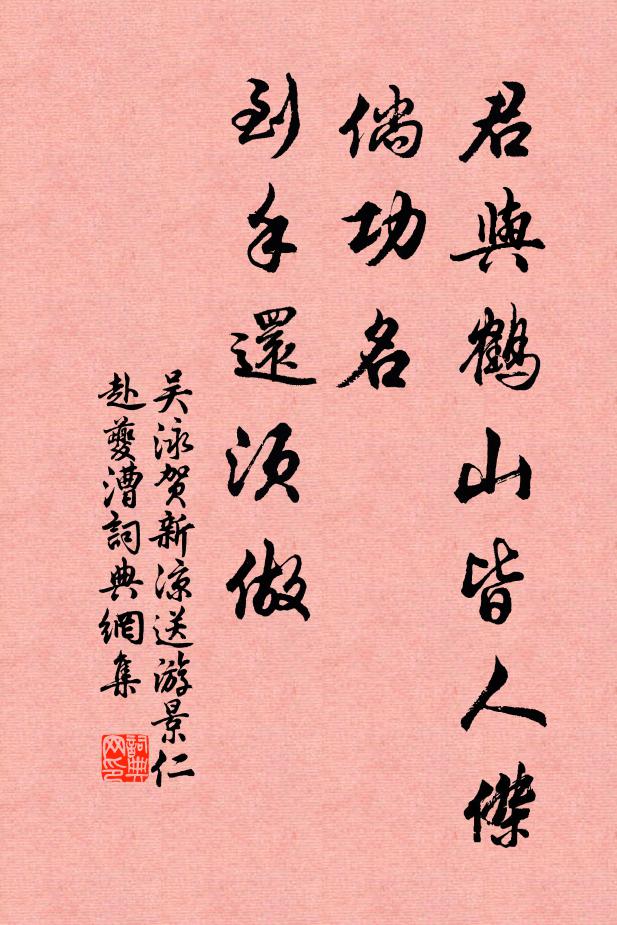 君與鶴山皆人傑
倘功名
到手還須做
吴泳贺新凉送游景仁
赴夔漕詞典網集
詞典网印